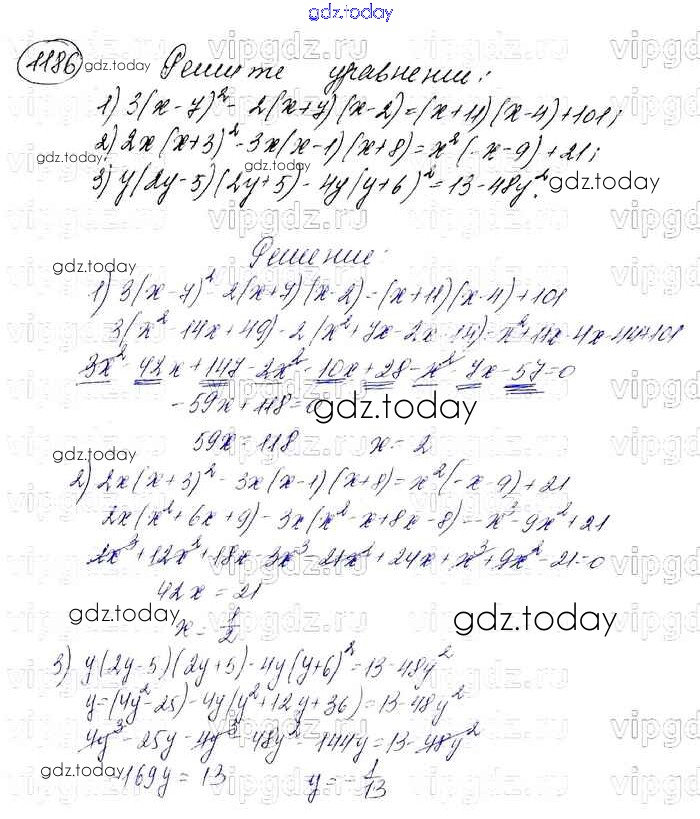 gdz.today
1186 gdz.today Решите уравнения:
1) 3(x-7)² - 2(x+7)(x-2) = (x+11)(x-4)+101;
2) 2x(x+3)² - 3x(x-1)(x+8) = x²(-x-9)+21;
gdz.today
3) y(2y-5)(2y+5) - 4y(y+6)² = 13-48y².
gdz.today
Решение:
gdz.today
1) 3(x-7)² - 2(x+7)(x-2) = (x+11)(x-4)+101
3(x²-14x+49) - 2(x²+7x-2x-14) = x²+11x-4x-44+101
3x²-42x+147-2x²-10x+28-x²-7x-57=0
-59x+118=0
gdz.today
59x=118 x=2
gdz.today
2) 2x(x+3)² - 3x(x-1)(x+8) = x²(-x-9)+21
2x(x²+6x+9) - 3x(x²-x+8x-8) = -x³-9x²+21
2x³+12x²+18x-3x³-21x²+24x+x³+9x²-21=0
42x = 21
gdz.today
gdz.today
x = 1/2
3) y(2y-5)(2y+5) - 4y(y+6)² = 13-48y²
y=(4y²-25)-4y(y²+12y+36)=13-48y²
4y³-25y-4y³-48y²-144y=13-48y²
gdz.today
-169y = 13 y = -1/13
gdz.today